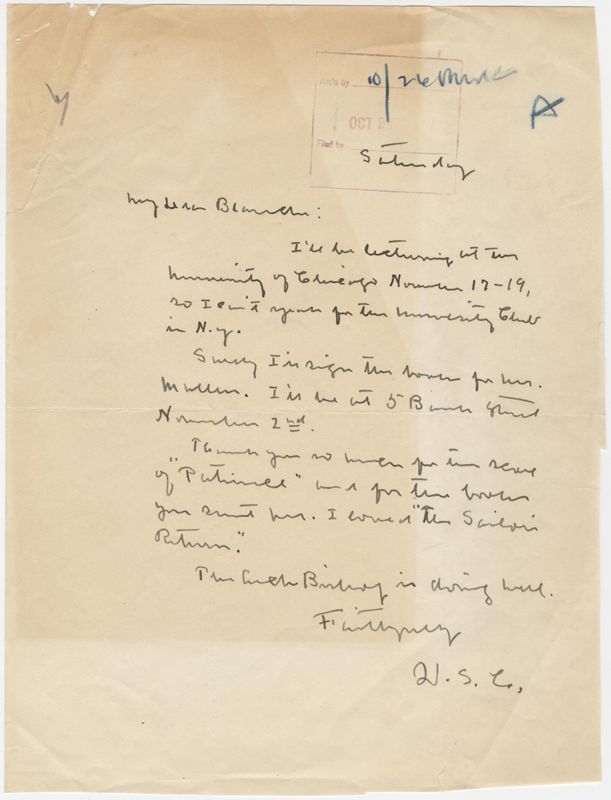 Ans'd by
OCT 2
Filed by
Saturday
My dear Blanche:
I'll be lecturing at the
University of Chicago November 17-19,
so I can't speak for the University Club
in N.Y.
Surely I'll sign the books for Mr.
Mullen. I'll be at 5 Bank Street
November 2nd.
Thank you so much for the
of Patience" and for the books
you sent me. I loved "The Sailor's
Return."
The Arch Bishop is doing well.
Faithfully
W. S. C.